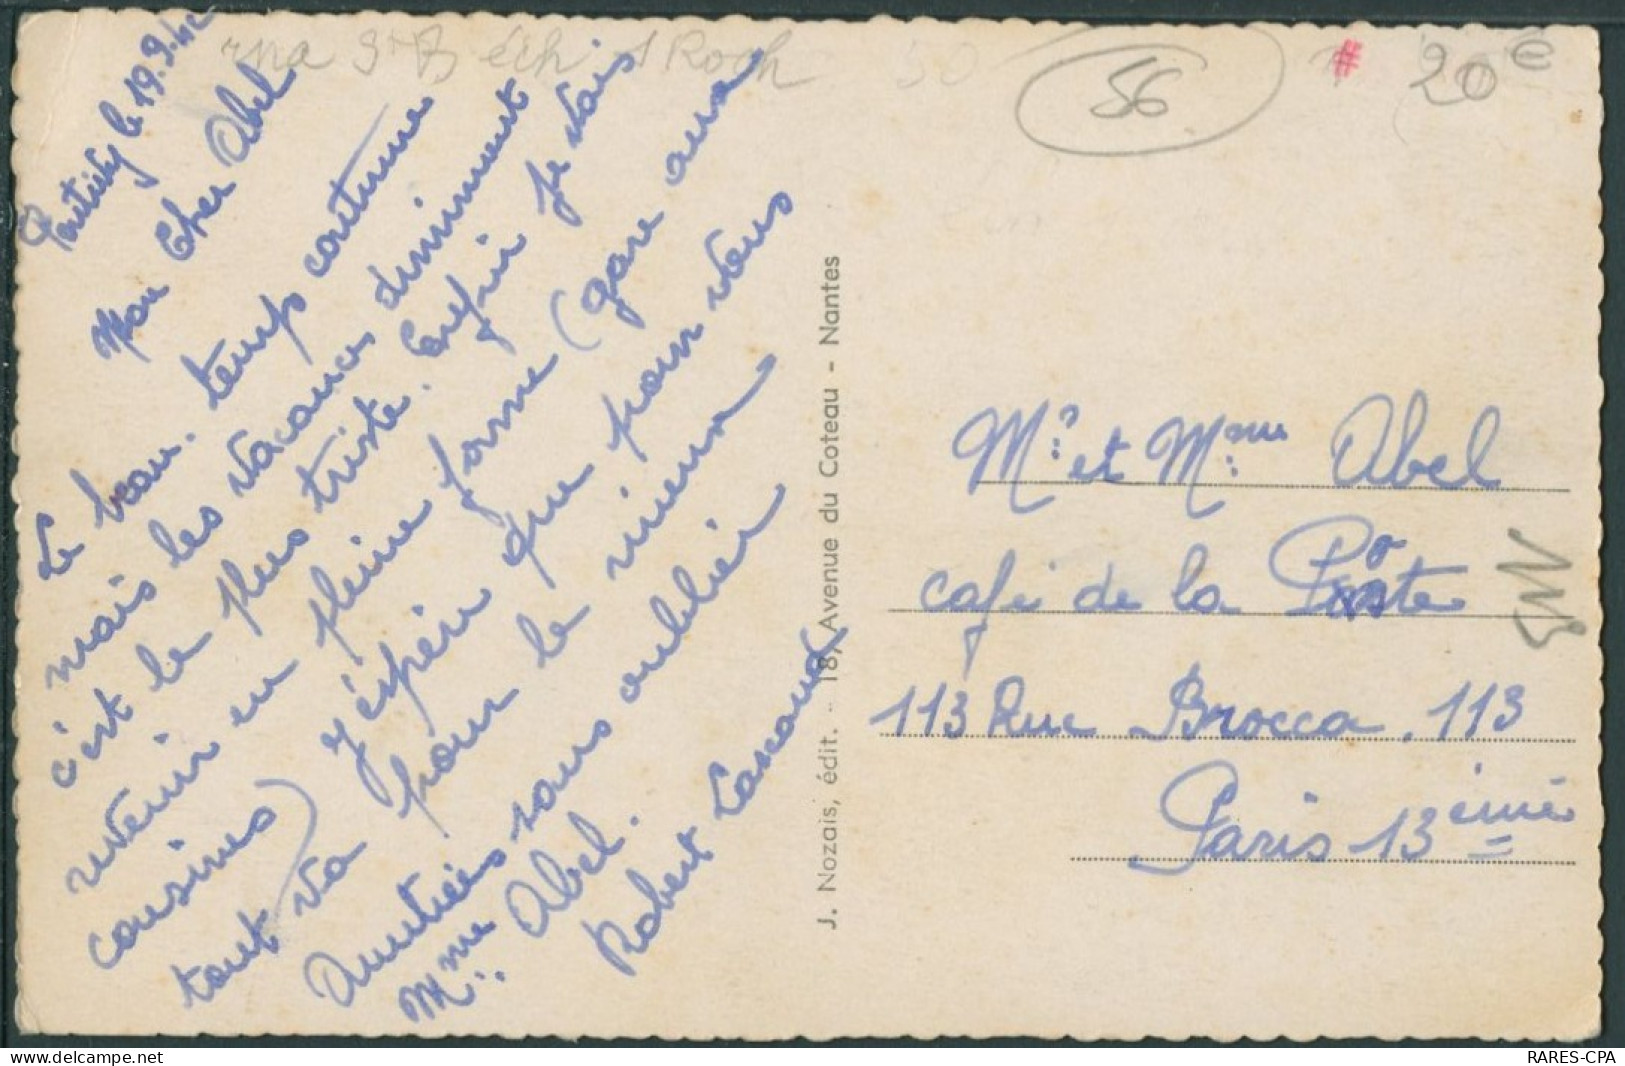 Pontivy le 19.9.42
Mon Cher Abel
Le beau temps continue
mais les vacances diminuent
c'est le plus triste. Enfin je vais
revenir en pleine forme (gare aux
cousines) j'éspére que pour vous
tout va pour le mieux
Amitiés sans oublier
Mme Abel.
Robert
J. Nozais, édit. - 18, Avenue du Coteau - Nantes
56
20 €
Mr et Mme Abel
café de la Poste
113 Rue Brocca. 113
Paris 13ème
delcampe.net
RARES-CPA